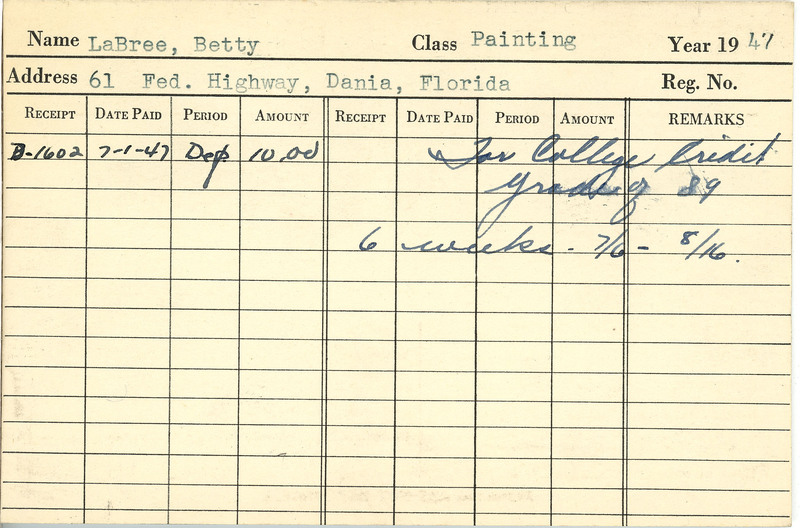 Name LaBree, Betty Class Painting Year 19 47
Address 61 Fed. Highway, Dania, Florida Reg. No.
RECEIPT DATE PAID PERIOD AMOUNT RECEIPT DATE PAID PERIOD AMOUNT REMARKS
B-1602 7-1-47 Dep 10.00 For College Credit
Grade of 89
6 weeks - 7/6 - 8/16.